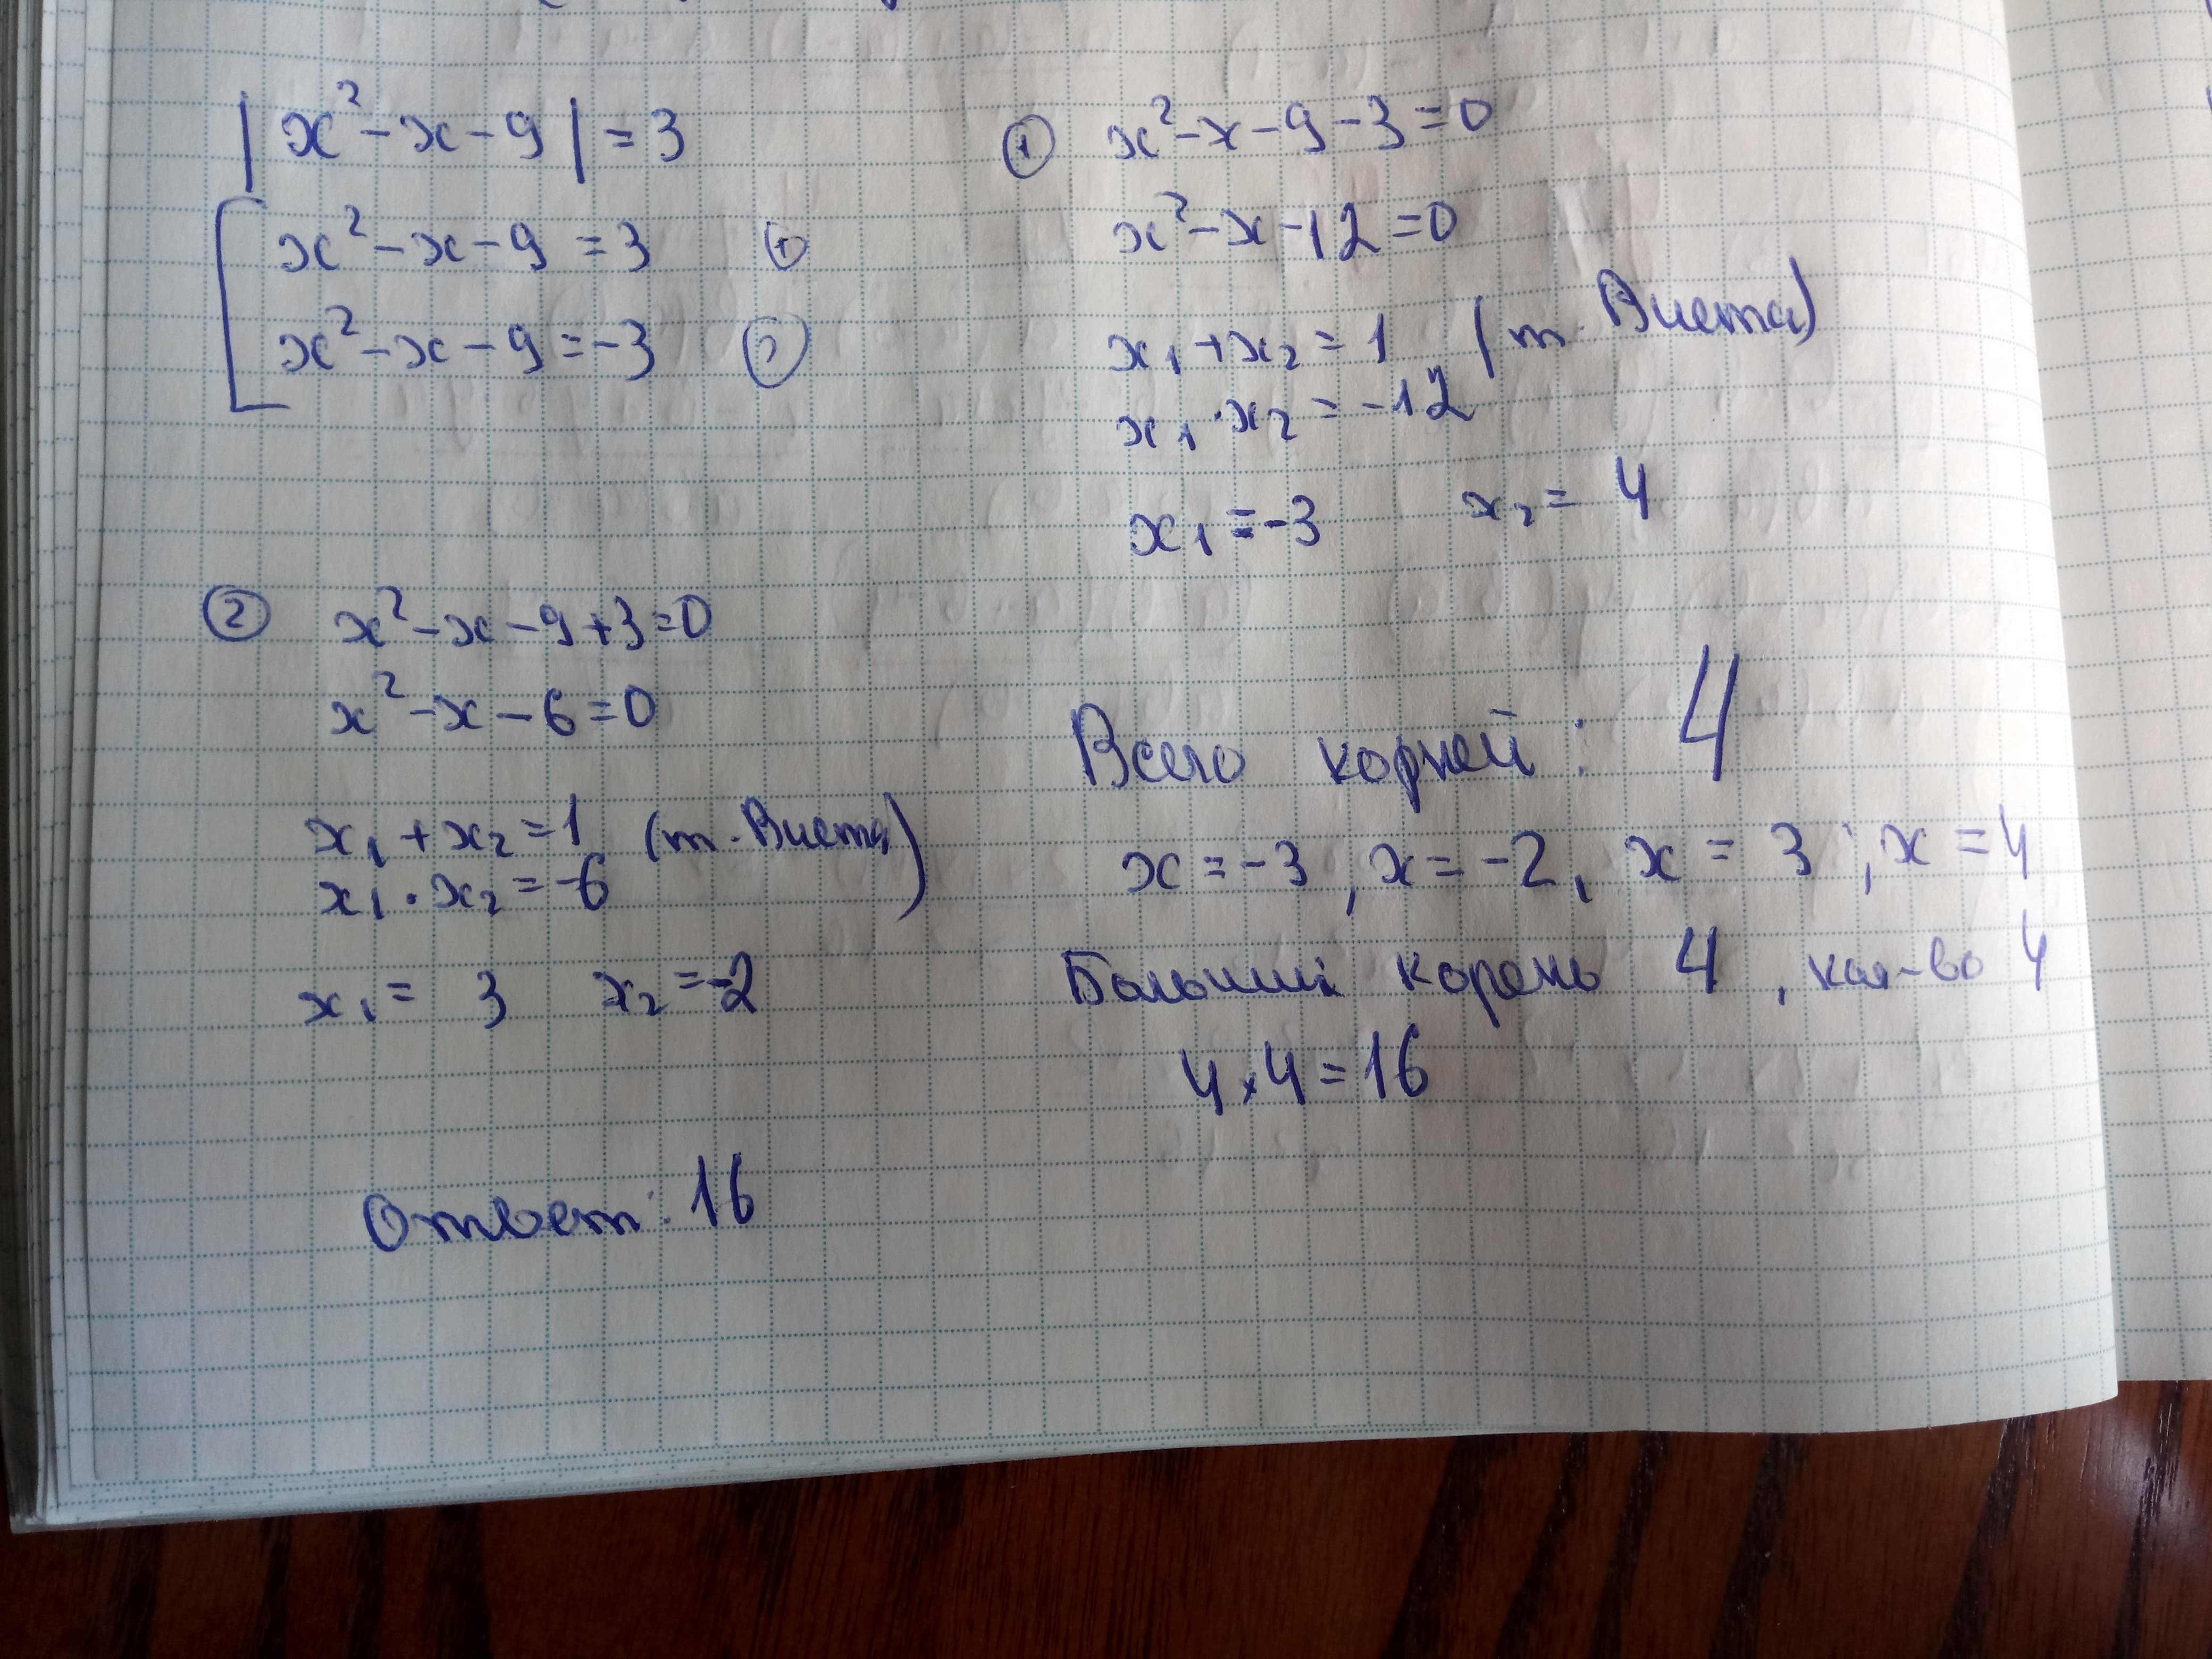 |x²-x-9|=3
x²-x-9=3 ①
x²-x-9=-3 ②
① x²-x-9-3=0
x²-x-12=0
x₁+x₂=1 (т. Виета)
x₁·x₂=-12
x₁=-3 x₂=4
② x²-x-9+3=0
x²-x-6=0
x₁+x₂=1 (т. Виета)
x₁·x₂=-6
x₁=3 x₂=-2
Всего корней: 4
x=-3, x=-2, x=3; x=4
Больший корень 4, кол-во 4
4×4=16
Ответ: 16